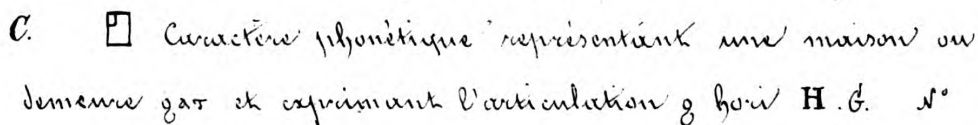 C. 𓉗 Caractère phonétique représentant une maison ou
demeure et exprimant l'articulation hori H.G. N°